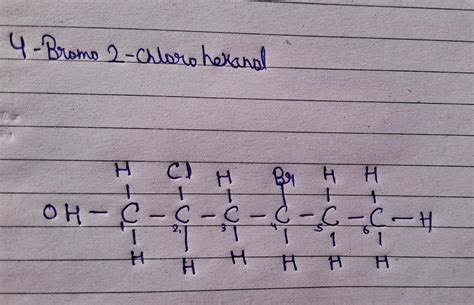 4-Bromo 2-chloro hexanol
H Cl H Br H H
OH - C - C - C - C - C - C - H
1 2 3 4 5 6
H H H H H H